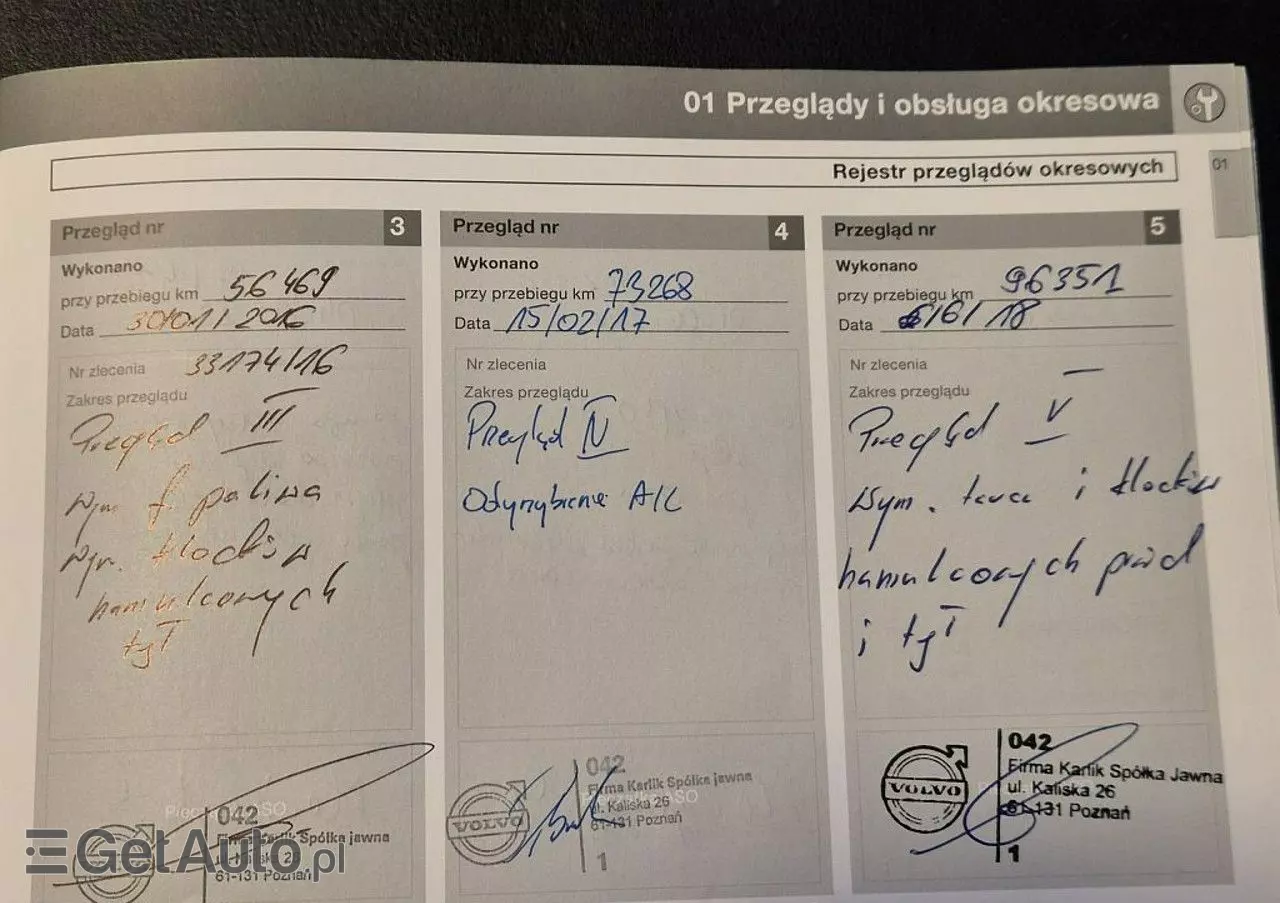 01 Przeglądy i obsługa okresowa
Rejestr przeglądów okresowych
01
Przegląd nr 3
Wykonano
przy przebiegu km 56 469
Data 30/01/2016
Nr zlecenia 33174/16
Zakres przeglądu
Przegląd III
Wym f. paliwa
Wym. klocków
hamulcowych
tył
Pieczątka ASO
042
Firma Karlik Spółka jawna
ul. Kaliska 26
61-131 Poznań
Przegląd nr 4
Wykonano
przy przebiegu km 73268
Data 15/02/17
Nr zlecenia
Zakres przeglądu
Przegląd IV
Odgrzybienie A/C
VOLVO
042
Firma Karlik Spółka jawna
ul. Kaliska 26
61-131 Poznań
1
Przegląd nr 5
Wykonano
przy przebiegu km 96351
Data 6/6/18
Nr zlecenia
Zakres przeglądu
Przegląd V
Wym. tarcz i klocków
hamulcowych przód
i tył
VOLVO
042
Firma Karlik Spółka Jawna
ul. Kaliska 26
61-131 Poznań
1
GetAuto.pl